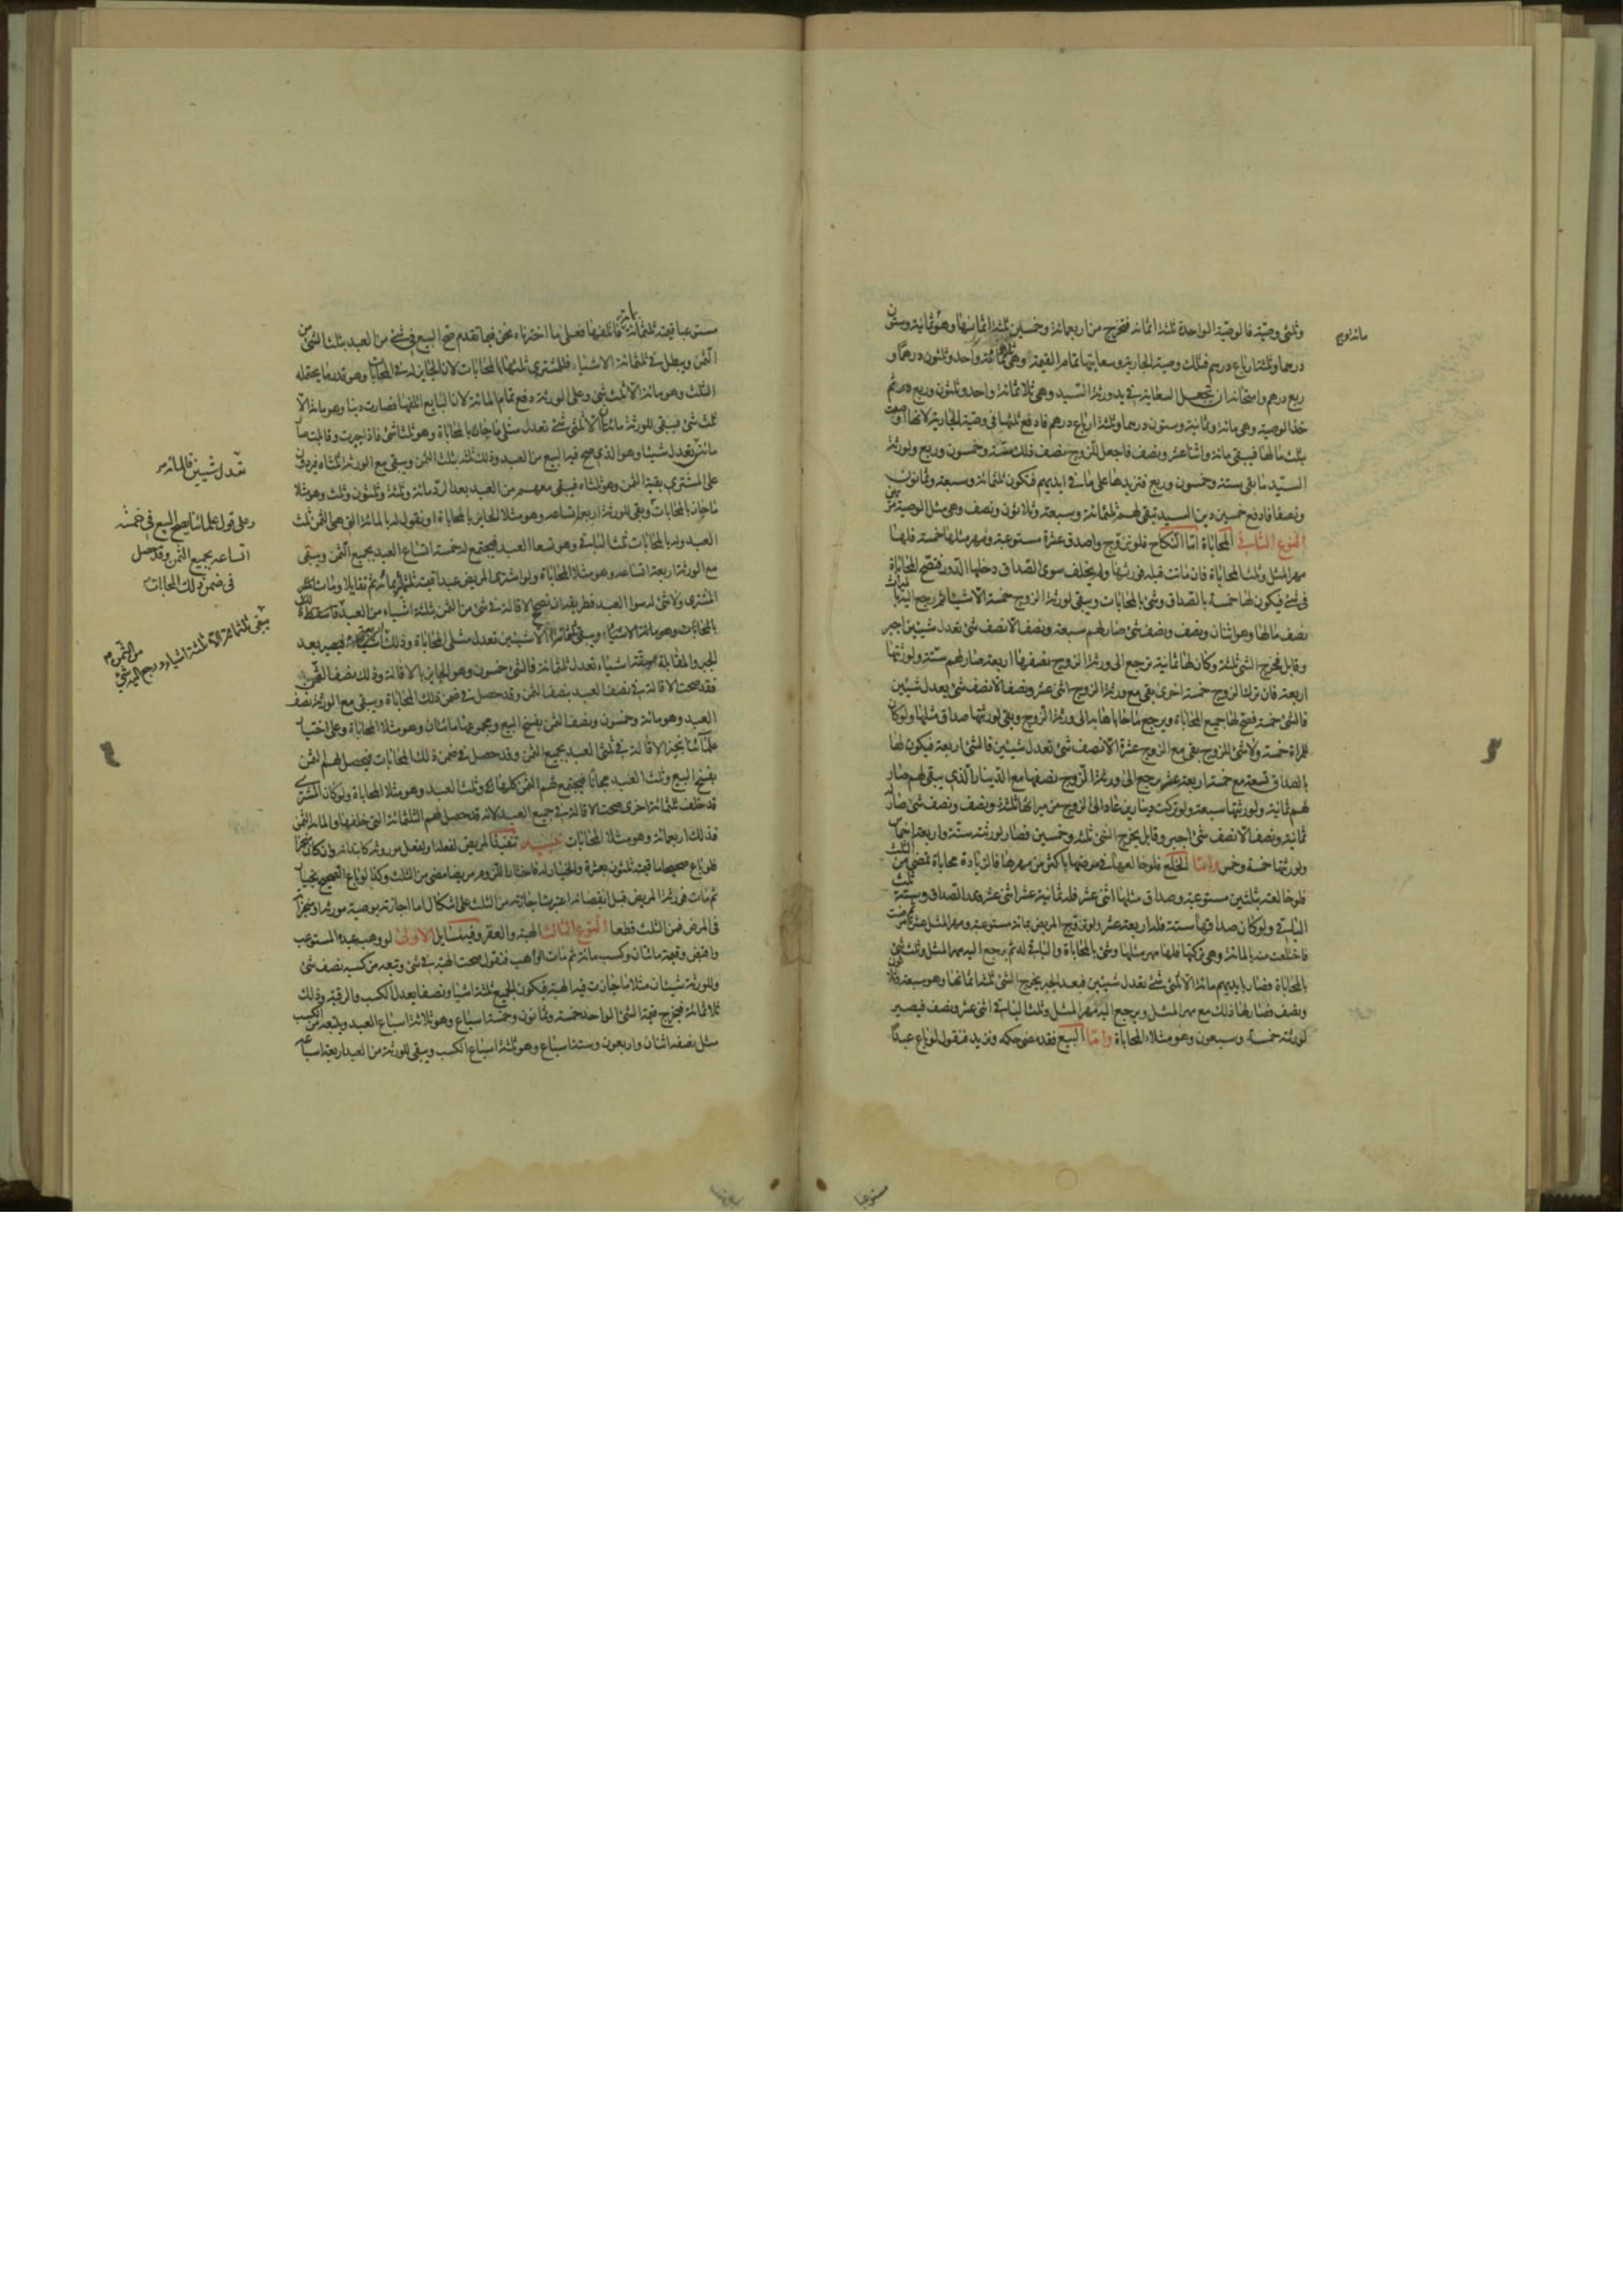 وثلثى وصية فالوصية الواحدة ثلثة اثمانه فتخرج من اربعمائة وخمسين ثلثة اثمانها وهو ثمانية وستون
درهما وثلثة ارباع درهم فتلك وصية الجارية وسعايتها تمام القيمة وهى ثلثمائة واحد وثلثون درهما و
ربع درهم وامتحانه ان تجعل السعاية فى يد ورثة السيد وهى ثلاثمائة واحد وثلثون وربع درهم ثم
خذ الوصية وهى مائة وثمانية وستون درهما وثلثة ارباع درهم فادفع ثلثها فى وصية الجارية لانها اوصت
بثلث مالها فيبقى مائة واثنا عشر ونصف فاجعل للزوج نصف ذلك ستة وخمسون وربع ولورثة
السيد ما بقى ستة وخمسون وربع فتزيدها على ما فى ايديهم فتكون ثلثمائة وسبعة وثمانون
ونصفا فادفع خمسين دين السيد تبقى لهم ثلثمائة وسبعة وثلاثون ونصف وهى مثل الوصية مرتين
النوع الثانى المحاباة اما النكاح فلو تزوج واصدق عشرة مستوعبة ومهر مثلها خمسة فلها
مهر المثل وثلث المحاباة فان ماتت قبله فورثها ولم يخلف سوى الصداق دخلها الدور فتصح المحاباة
فى شئ فيكون لها خمسة بالصداق وشئ بالمحابات ويبقى لورثة الزوج خمسة الا شيئا ثم رجع اليه بالميراث
نصف مالها وهو اثنان ونصف ونصف شئ صار لهم سبعة ونصف الا نصف شئ تعدل شيئين اجبر
وقابل تخرج الشئ ثلثة وكان لها ثمانية يرجع الى ورثة الزوج نصفها اربعة صار لهم ستة ولورثتها
اربعة فان ترك الزوج خمسة اخرى بقى مع ورثة الزوج اثنى عشر ونصف الا نصف شئ يعدل شيئين
فالشئ خمسة فتصح لها جميع المحاباة ويرجع ما حاباها به الى ورثة الزوج وبقى لورثتها صداق مثلها ولو كان
للمراة خمسة ولا شئ للزوج بقى مع الزوج عشرة الا نصف شئ تعدل شيئين فالشئ اربعة فيكون لها
بالصداق تسعة مع خمستها اربعة عشر يرجع الى ورثة الزوج نصفها مع الدينار الذى يبقى لهم صار
لهم ثمانية ولورثتها سبعة ولو تركت دينارين عاد الى الزوج من ميراثها ثلثة ونصف ونصف شئ صار
ثمانية ونصف الا نصف شئ اجبر وقابل يخرج الشئ ثلثة وخمسين فصار لورثته ستة واربعة اخماس
ولورثتها خمسة وخمس واما الخلع فلو خالعها فى مرضها باكثر من مهرها فالزيادة محاباة تمضى من الثلث
فلو خالعته بثلثين مستوعبة وصداق مثلها اثنى عشر فله ثمانية عشر اثنى عشر قدر الصداق وستة ثلث
الباقى ولو كان صداقها ستة فله اربعة عشر ولو تزوج المريض بمائة مستوعبة ومهر المثل عشرة ثم مرضت
فاختلعت منه بالمائة وهى تركتها فلها مهر مثلها وشئ بالمحاباة والباقى له ثم يرجع اليه مهر المثل وثلث شئ
بالمحاباة فصار بايديهم مائة الا ثلثى شئ تعدل شيئين فبعد الجبر يخرج الشئ ثلثة اثمانها وهو سبعة وثلاثون
ونصف فصار لها ذلك مع مهر المثل ويرجع اليه مهر المثل وثلث الباقى اثنى عشر ونصف فيصير
لورثته خمسة وسبعون وهو مثلا المحاباة واما البيع فقد مضى حكمه ونزيد فنقول لو باع عبدا
مستوعبا
مستوعبا قيمته ثلثمائة بمائة فاتلفها فعلى ما اخترناه نحن فيما تقدم صح البيع فى شئ من العبد بثلث الشئ من
الثمن ويبطل فى ثلثمائة الا شيئا فللمشترى ثلثاها المحابات لان الجايز له فى المحاباة وهو قدر ما يحتمله
الثلث وهو مائة الا ثلث شئ وعلى الورثة دفع تمام المائة لان البايع اتلفها فصارت دينا وهو مائة الا
ثلث شئ فيبقى للورثة مائتان الا ثلثى شئ تعدل مثلى ما جاز بالمحاباة وهو ثلثا شئ فاذا جبرت وقابلت صار
مائتين تعدل شيئا وهو الذى صح فيه البيع من العبد وذلك ثلثه بثلث الثمن ويبقى مع الورثة ثلثاه فيردون
على المشترى بقية الثمن وهو ثلثاه فيبقى معهم من العبد بعد الرد مائة وثلثة وثلثون وثلث وهو مثلا
ما جاز بالمحابات وبقى للورثة اربعة اتساعه وهو مثلا الجايز بالمحاباة او نقول له بالمائة التى هى الثمن ثلث
العبد وله بالمحابات ثلث الباقى وهو تسعا العبد فيجتمع له خمسة اتساع العبد بجميع الثمن ويبقى
مع الورثة اربعة اتساعه وهو مثلا المحاباة ولو اشترى المريض عبدا قيمته ثلثمائة بمائة ثم تقايلا ومات
المشترى ولا شئ له سوا العبد
بالمحابات وهو مائة الا شيئا ويبقى
الجبر والمقابلة ستة اشياء تعدل ثلثمائة فالشئ خمسون وهو الجايز بالاقالة وذلك نصف الثمن
فقد صحت الاقالة فى نصف العبد بنصف الثمن وقد حصل فى ضمن ذلك المحاباة ويبقى مع الورثة نصف
العبد وهو مائة وخمسون ونصف الثمن بفسخ البيع ومجموعها مائتان وهو مثلا المحاباة وعلى اختيار
علمائنا يجيز الاقالة فى ثلثى العبد بجميع الثمن وقد حصل فى ضمن ذلك المحابات فيحصل لهم الثمن
بفسخ البيع وثلث العبد مجانا فيجتمع لهم الثمن كله وثلث العبد وهو مثلا المحاباة ولو كان المشترى
قد خلف ثلثمائة اخرى صحت الاقالة فى جميع العبد لانه قد حصل لهم الثلثمائة التى خلفها والمائة الثمن
فذلك اربعمائة وهو مثلا المحابات تنبيه تنفيذ المريض لفعله ولفعل موروثه كابتدائه وان كان منجزا
فلو باع صحيحا ما قيمته ثلثون بعشرة والخيار له فاختار اللزوم مريضا مضى من الثلث وكذا لو باع الصحيح بخيار
ثم مات فورثه المريض قبل انقضائه اعتبرنا اجازته من الثلث على اشكال اما اجازته بوصية مورثه او منجزاته
فى المرض فمن الثلث قطعا النوع الثالث الهبة والعقر وفيه مسايل الاولى لو وهب عبده المستوعب
واقبض وقيمته مائتان وكسب مائة ثم مات الواهب فنقول صحت الهبة فى شئ وتبعه من كسبه نصف شئ
وللورثة شيئان مثلا ما جازت فيه الهبة فيكون الجميع ثلثة اشيا ونصفا يعدل الكسب والرقبة وذلك
ثلاثمائة فيخرج قيمة الشئ الواحد خمسة وثمانون وخمسة اسباع وهو ثلاثة اسباع العبد ويتبعه من الكسب
مثل نصفه اثنان واربعون وستة اسباع وهو ثلثة اسباع الكسب ويبقى للورثة من العبد اربعة اسباعه
تعدل شيئين فالمائة
وعلى قول علمائنا يصح البيع فى خمسة
اتساعه بجميع الثمن وقد حصل
فى ضمن ذلك المحابات
يبقى ثلثمائة الا ثلثة اشياء ويرجع اليه شئ
من الثمن